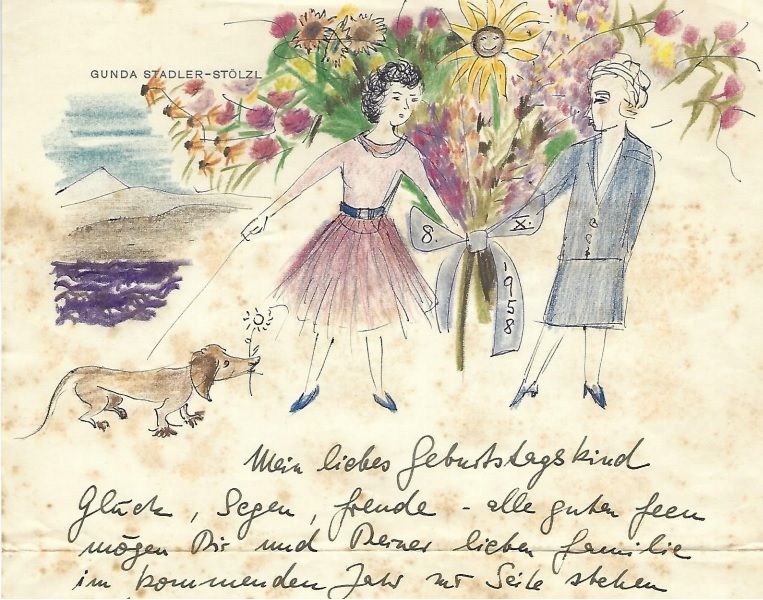 GUNDA STADLER-STÖLZL
8. X. 1958
Mein liebes Geburtstagskind
Glück, Segen, Freude - alle guten Feen
mögen Dir und Deiner lieben Familie
im kommenden Jahr zur Seite stehen